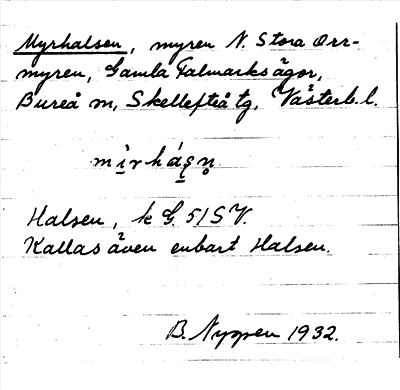 Myrhalsen, myren N. Stora Orr-
myren, Gamla Falmarks ägor,
Bureå sn, Skellefteå tg, Västerb. l.
Halsen, k G. 51 SV.
Kallas även enbart Halsen.
B. Nyppen 1932.